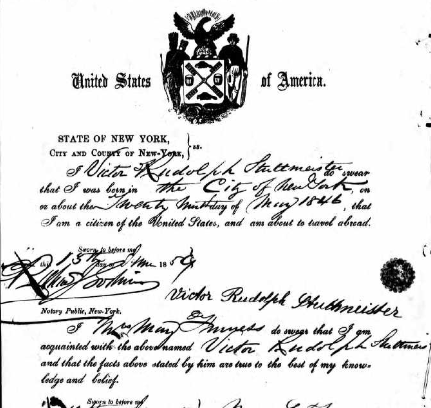 United States of America.
STATE OF NEW YORK,
CITY AND COUNTY OF NEW-YORK, } ss.
I Victor Rudolph Stuttmeister do swear
that I was born in the City of New York, on
or about the Twenty ninth day of May 1846, that
I am a citizen of the United States, and am about to travel abroad.
Sworn to before me
this 13th day of June 1859
Victor Rudolph Stuttmeister
Notary Public, New-York.
I Mrs Mary do swear that I am
acquainted with the above named Victor Rudolph Stuttmeister
and that the facts above stated by him are true to the best of my know-
ledge and belief.
Sworn to before me